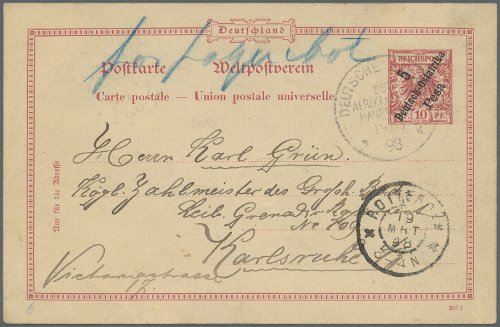 Deutschland
Postkarte Weltpostverein
Carte postale — Union postale universelle.
REICHSPOST
5
Deutsch-Ostafrika
Pesa
10 PF.
DEUTSCHE
AFRIKA
98
Nur für die Adresse
Herrn Karl Grün,
Kögl. Zahlmeister des Großh. B.
Leib. Grenadir Rgt
No 109
Karlsruhe
Victoriastrasse
19
MRT
98